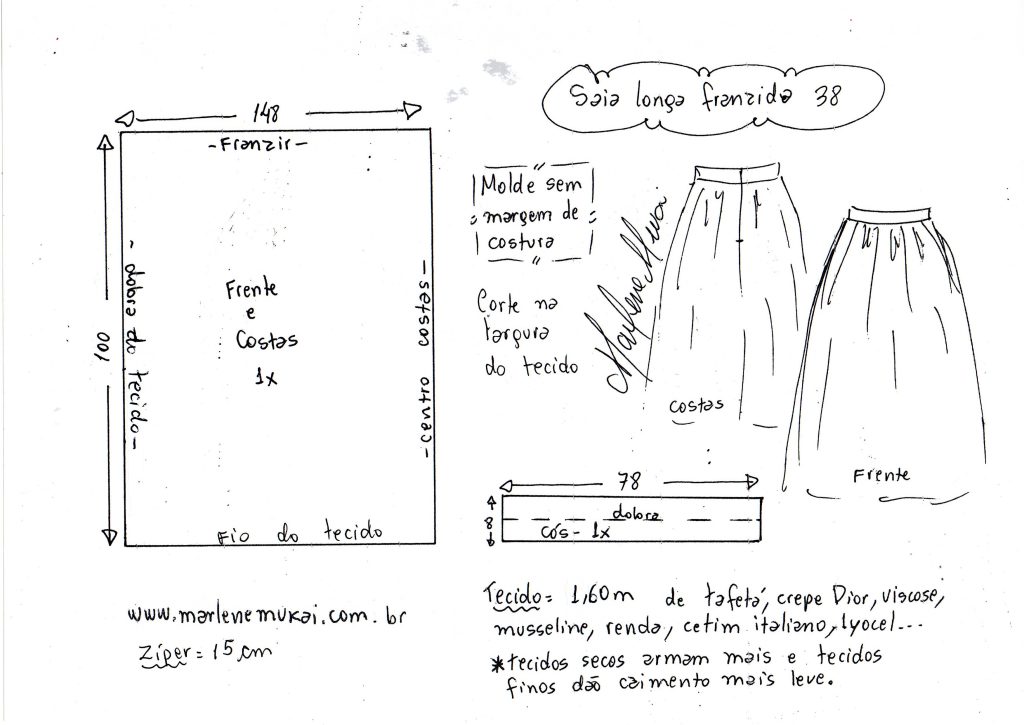 Saia longa franzida 38
148
-Franzir-
100
-dobra do tecido-
Frente
e
Costas
1x
-centro costas-
Fio do tecido
Molde sem
margem de
costura
Corte na
largura
do tecido
Marlene Mukai
costas
Frente
78
8
dobra
cós - 1x
www.marlenemukai.com.br
Zíper = 15cm
Tecido = 1,60m de tafetá, crepe Dior, viscose,
musseline, renda, cetim italiano, lyocel...
*tecidos secos armam mais e tecidos
finos dão caimento mais leve.